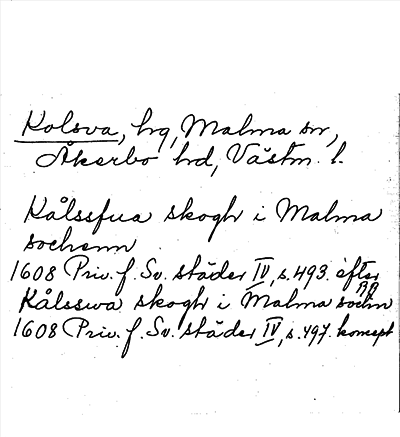 Kolsva, hg, Malma sn,
Åkerbo hd, Västm. l.
Kålssfua skogh i Malma
sochenn
1608 Priv. f. Sv. städer IV, s. 493. efter
RR
Kålsswa skogh i Malma sochn
1608 Priv. f. Sv. städer IV, s. 497. koncept